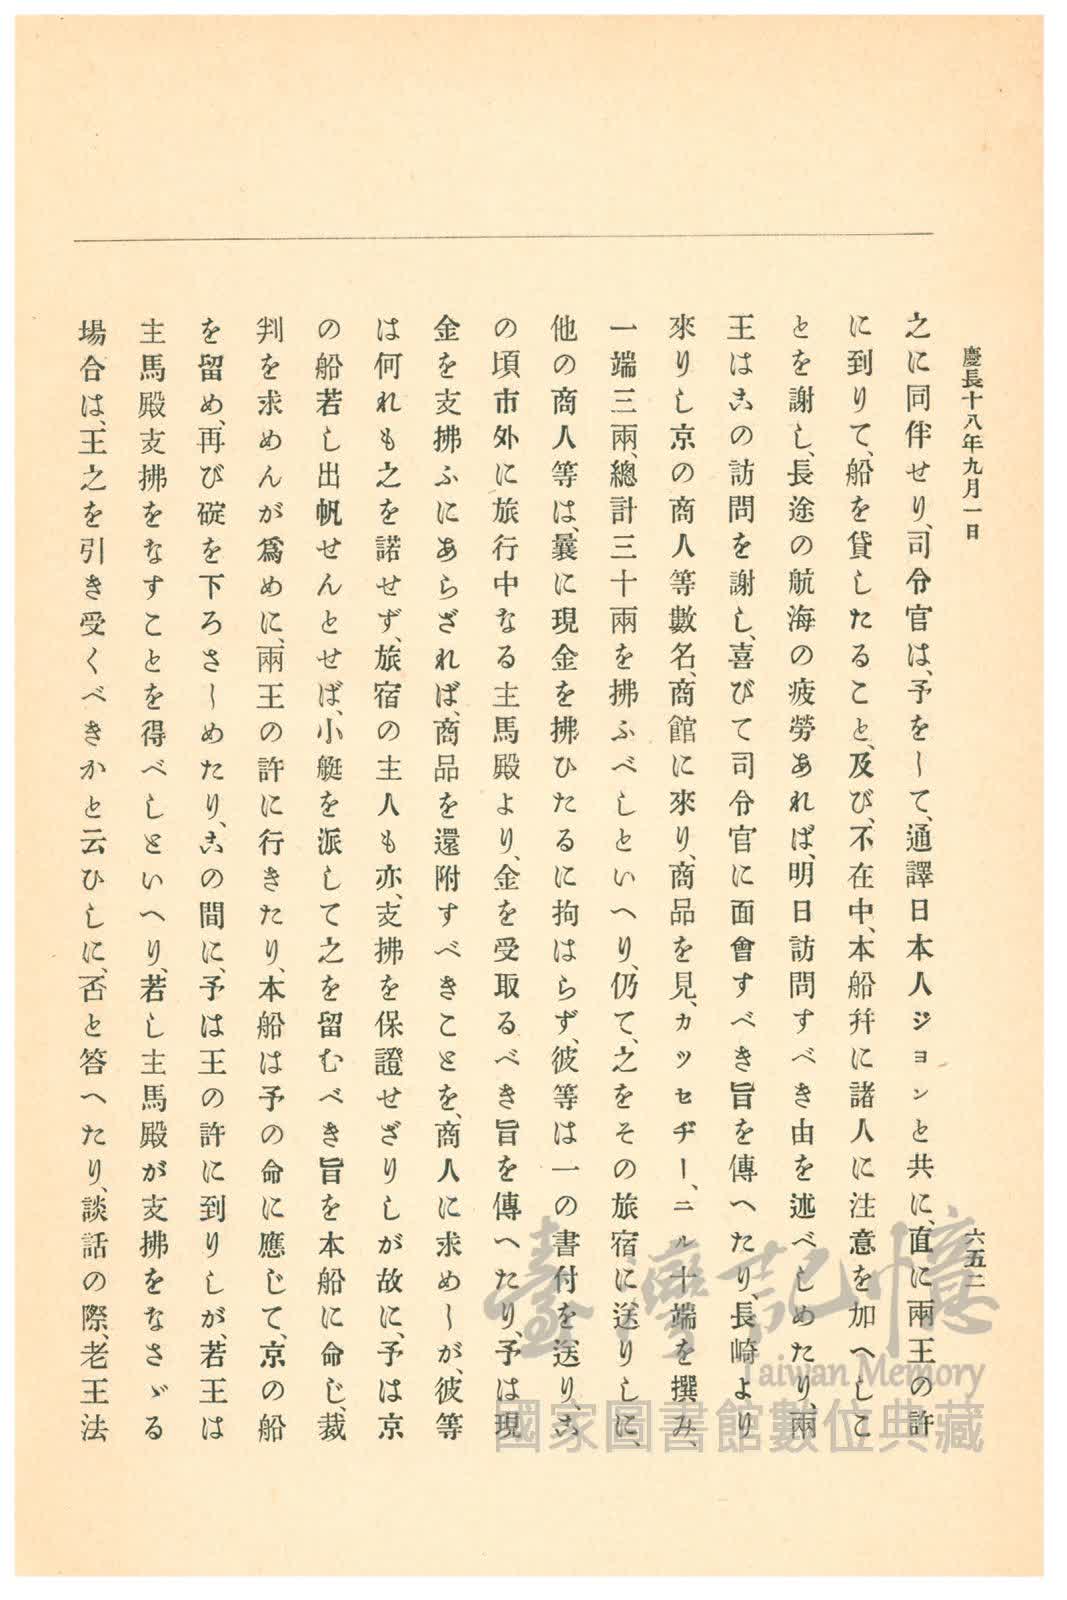 慶長十八年九月一日
六五二
之に同伴せり、司令官は、予をして、通譯日本人ジョンと共に、直に兩王の許
に到りて、船を貸したること、及び、不在中、本船幷に諸人に注意を加へしこ
とを謝し、長途の航海の疲勞あれば、明日訪問すべき由を述べしめたり、兩
王はこの訪問を謝し、喜びて司令官に面會すべき旨を傳へたり、長崎より
來りし京の商人等數名、商館に來り、商品を見、カッセヂー、ニル十端を撰み、
一端三兩、總計三十兩を拂ふべしといへり、仍て、之をその旅宿に送りしに、
他の商人等は、曩に現金を拂ひたるに拘はらず、彼等は一の書付を送り、こ
の頃市外に旅行中なる主馬殿より、金を受取るべき旨を傳へたり、予は現
金を支拂ふにあらざれば、商品を還附すべきことを、商人に求めしが、彼等
は何れも之を諾せず、旅宿の主人も亦、支拂を保證せざりしが故に、予は京
の船若し出帆せんとせば、小艇を派して之を留むべき旨を本船に命じ、裁
判を求めんが爲めに、兩王の許に行きたり、本船は予の命に應じて、京の船
を留め、再び碇を下ろさしめたり、この間に、予は王の許に到りしが、若王は
主馬殿支拂をなすことを得べしといへり、若し主馬殿が支拂をなさゞる
場合は、王之を引き受くべきかと云ひしに、否と答へたり、談話の際、老王法
臺灣記憶
Taiwan Memory
國家圖書館數位典藏